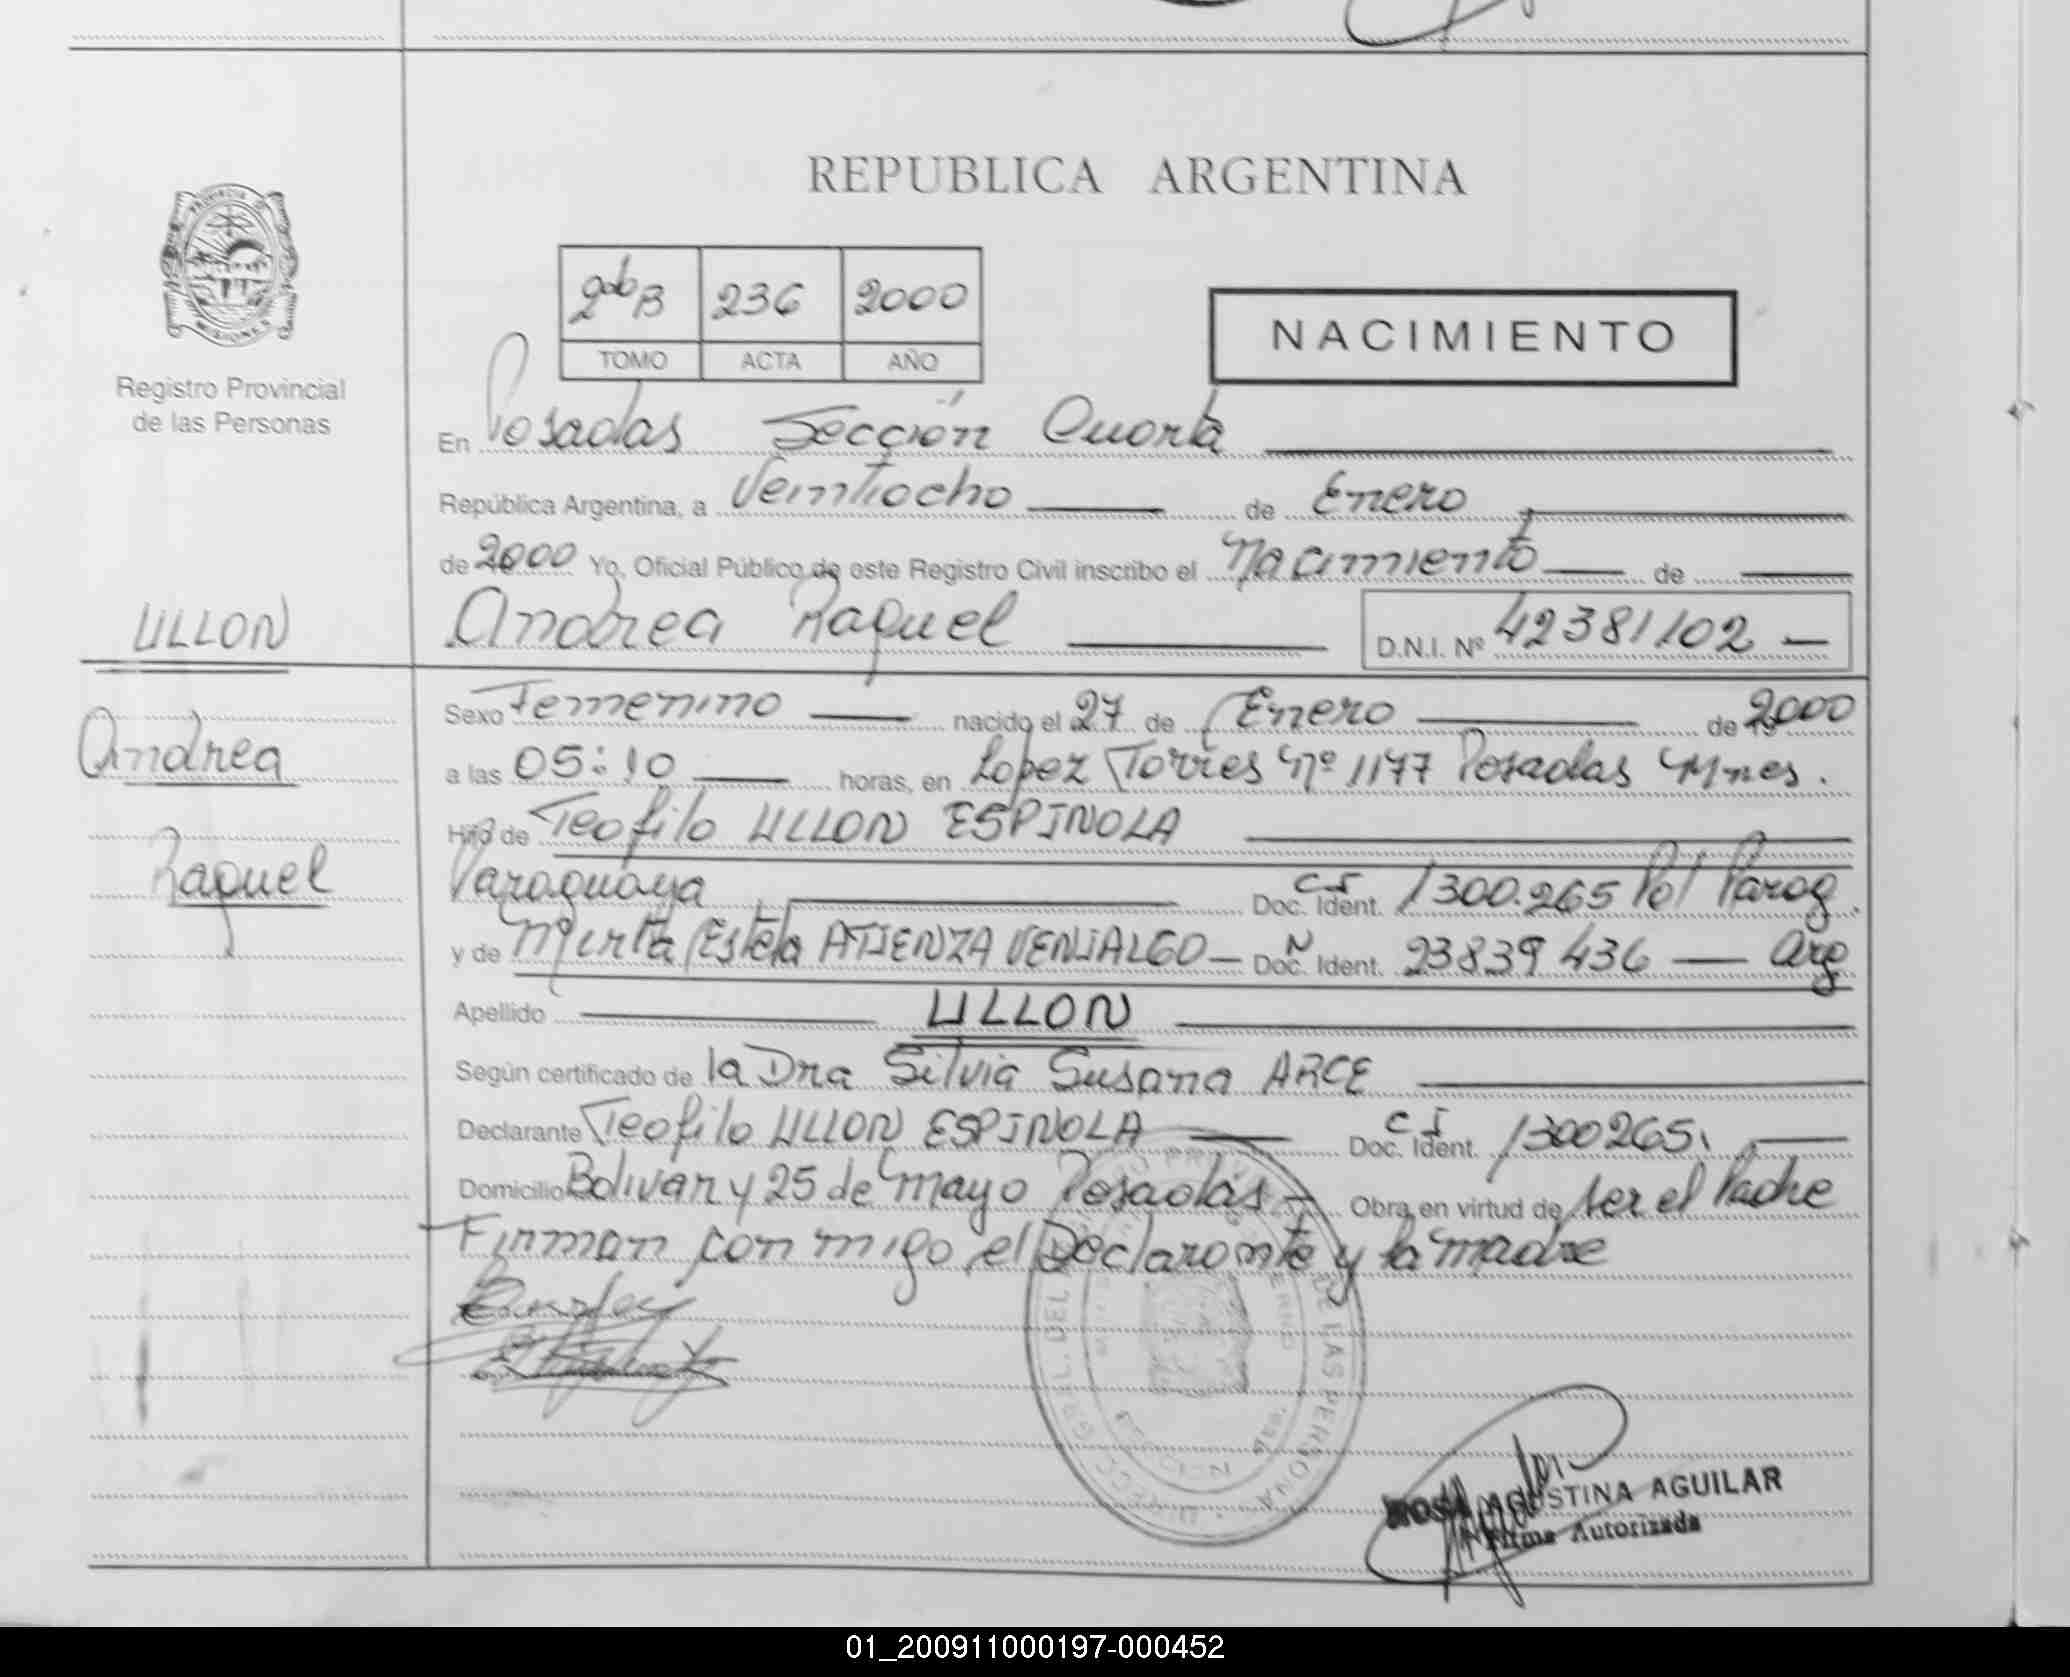 REPUBLICA ARGENTINA
PROVINCIA DE
MISIONES
Registro Provincial
de las Personas
2do B 236 2000
TOMO ACTA AÑO
NACIMIENTO
En Posadas Sección Cuarta
República Argentina, a Veintiocho de Enero
de 2000 Yo, Oficial Público de este Registro Civil inscribo el Nacimiento de
ULLON
Andrea Raquel D.N.I. Nº 42381102
Andrea
Raquel
Sexo Femenino nacido el 27 de Enero de 2000
a las 05:10 horas, en Lopez Torres Nº 1177 Posadas Mnes.
Hijo de Teofilo ULLON ESPINOLA
Paraguaya Doc. Ident. CI 1300.265 Pol Parag.
y de Mirta Estela ATIENZA VENIALGO Doc. Ident. N 23839436 Arg
Apellido ULLON
Según certificado de la Dra Silvia Susana ARCE
Declarante Teofilo ULLON ESPINOLA Doc. Ident. CI 1300265.
Domicilio Bolivar y 25 de Mayo Posadas Obra en virtud de ser el Padre
Firman con migo el Declarante y la madre
DE LAS PERSONAS
ROSA AGUSTINA AGUILAR
Firma Autorizada
01_200911000197-000452